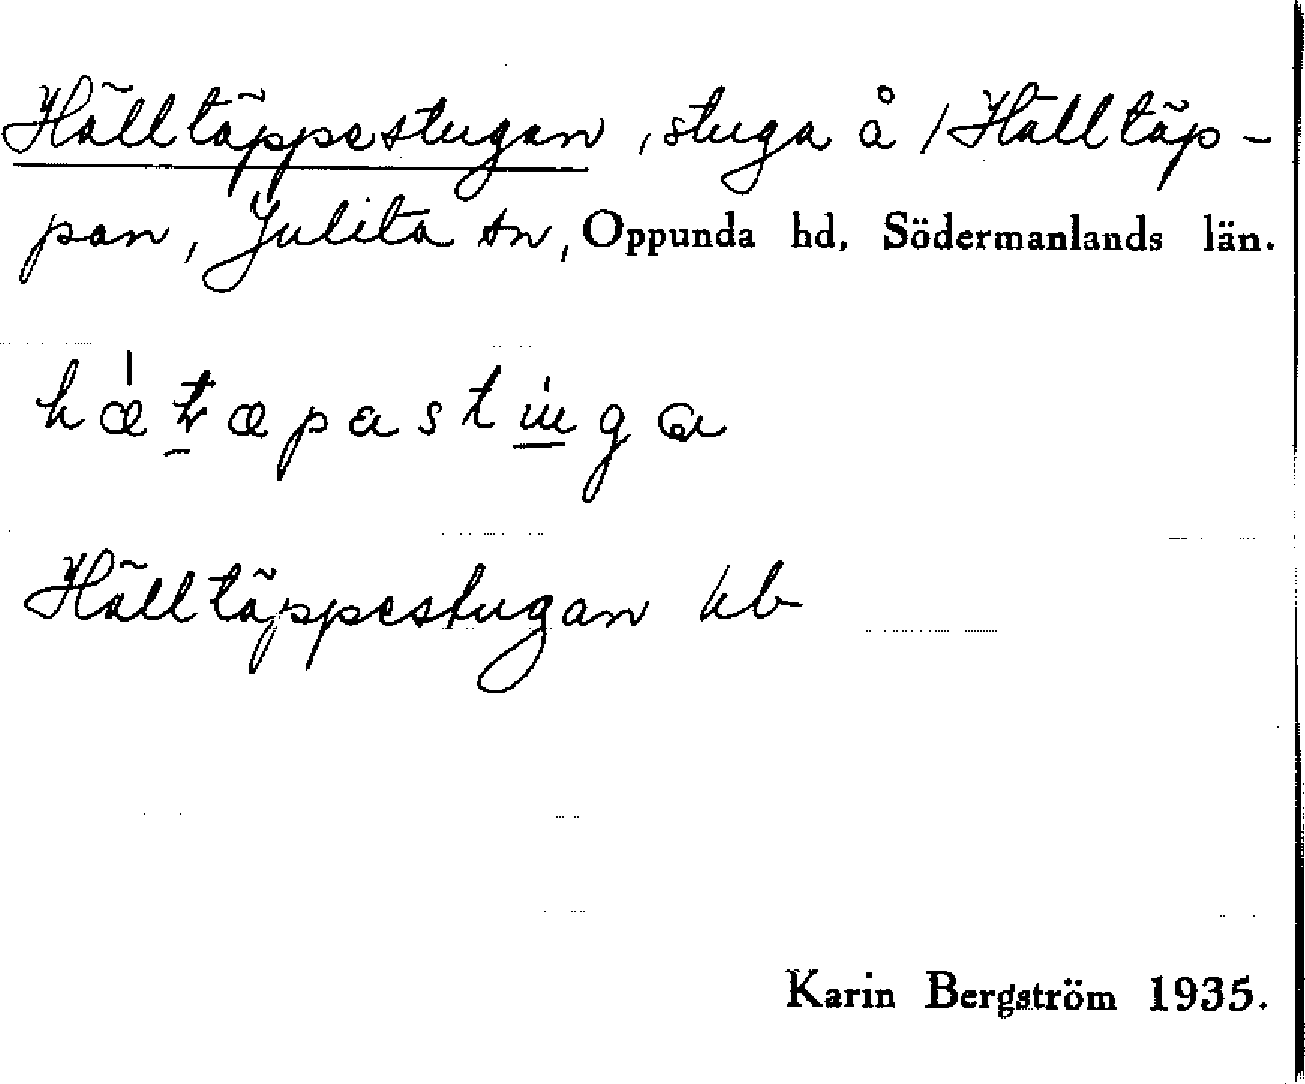 Hälltäppestugan, stuga å /Hälltäp-
pan, Julita sn, Oppunda hd, Södermanlands län.
Hälltäppestugan kb
Karin Bergström 1935.